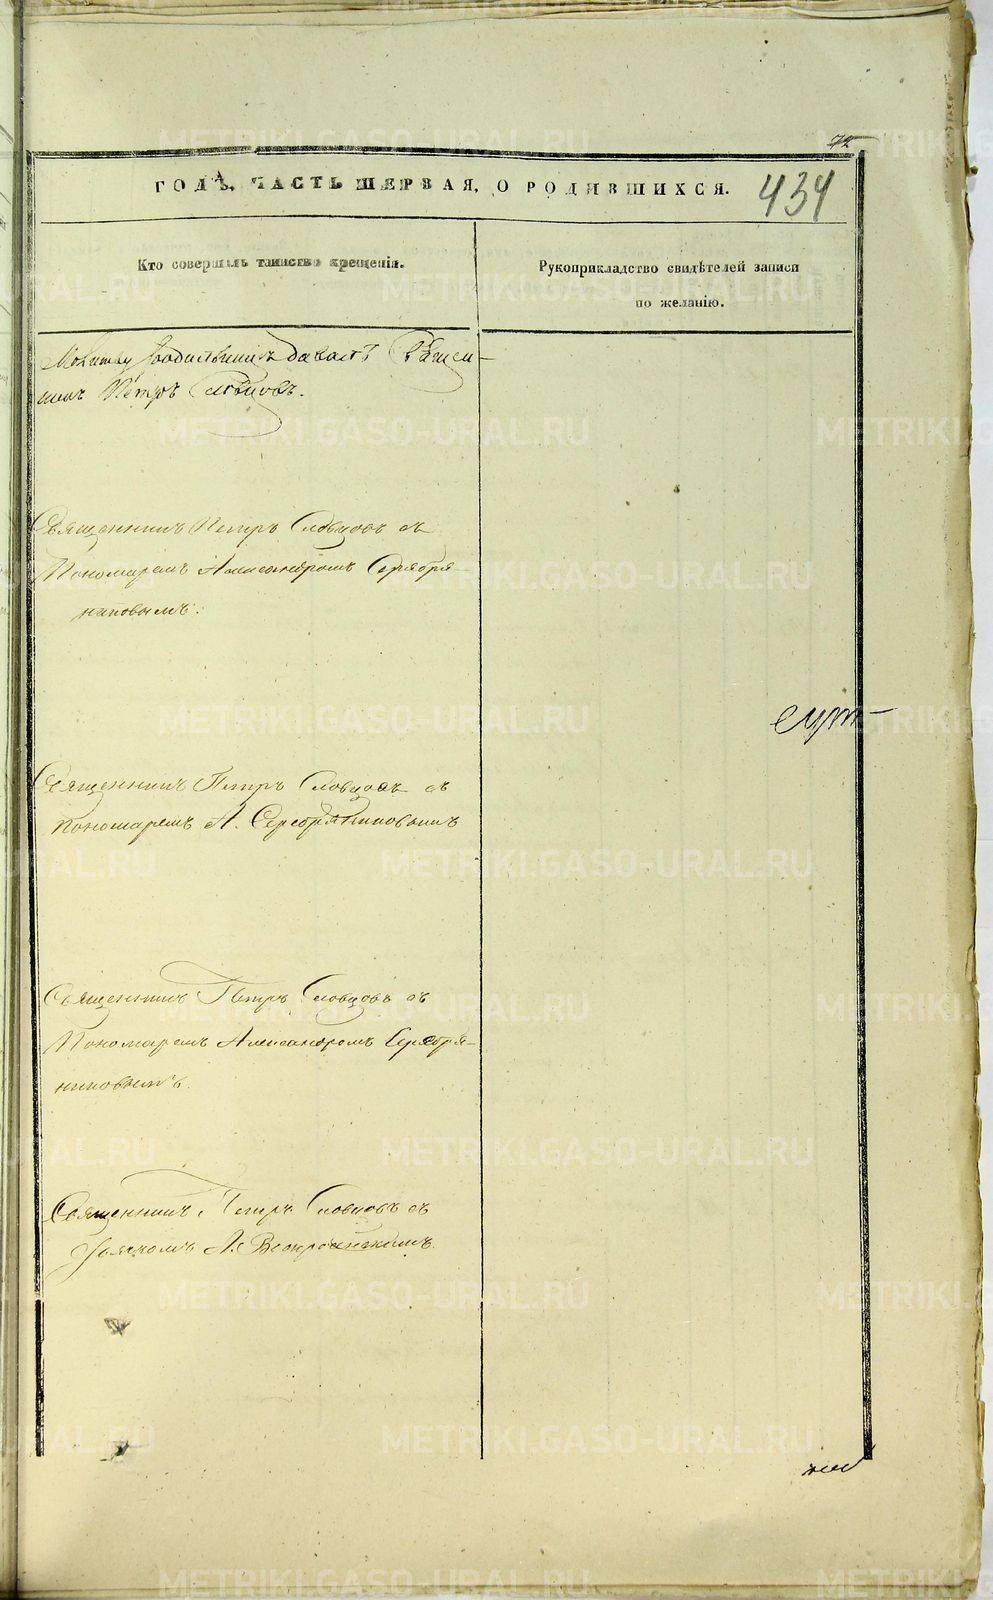 72
ГОДѢ, ЧАСТЬ ПЕРВАЯ, О РОДИВШИХСЯ.
434
Кто совершалъ таинство крещенія.
Рукоприкладство свидѣтелей записи
по желанію.
Молитву родильницѣ давалъ Священ-
никъ Петръ Словцовъ.
Священникъ Петръ Словцовъ съ
Пономаремъ Александромъ Серебря-
никовымъ.
Священникъ Петръ Словцовъ съ
Пономаремъ А. Серебряниковымъ
Священникъ Петръ Словцовъ съ
Пономаремъ Александромъ Серебря-
никовымъ.
Священникъ Петръ Словцовъ съ
METRIKI.GASO-URAL.RU